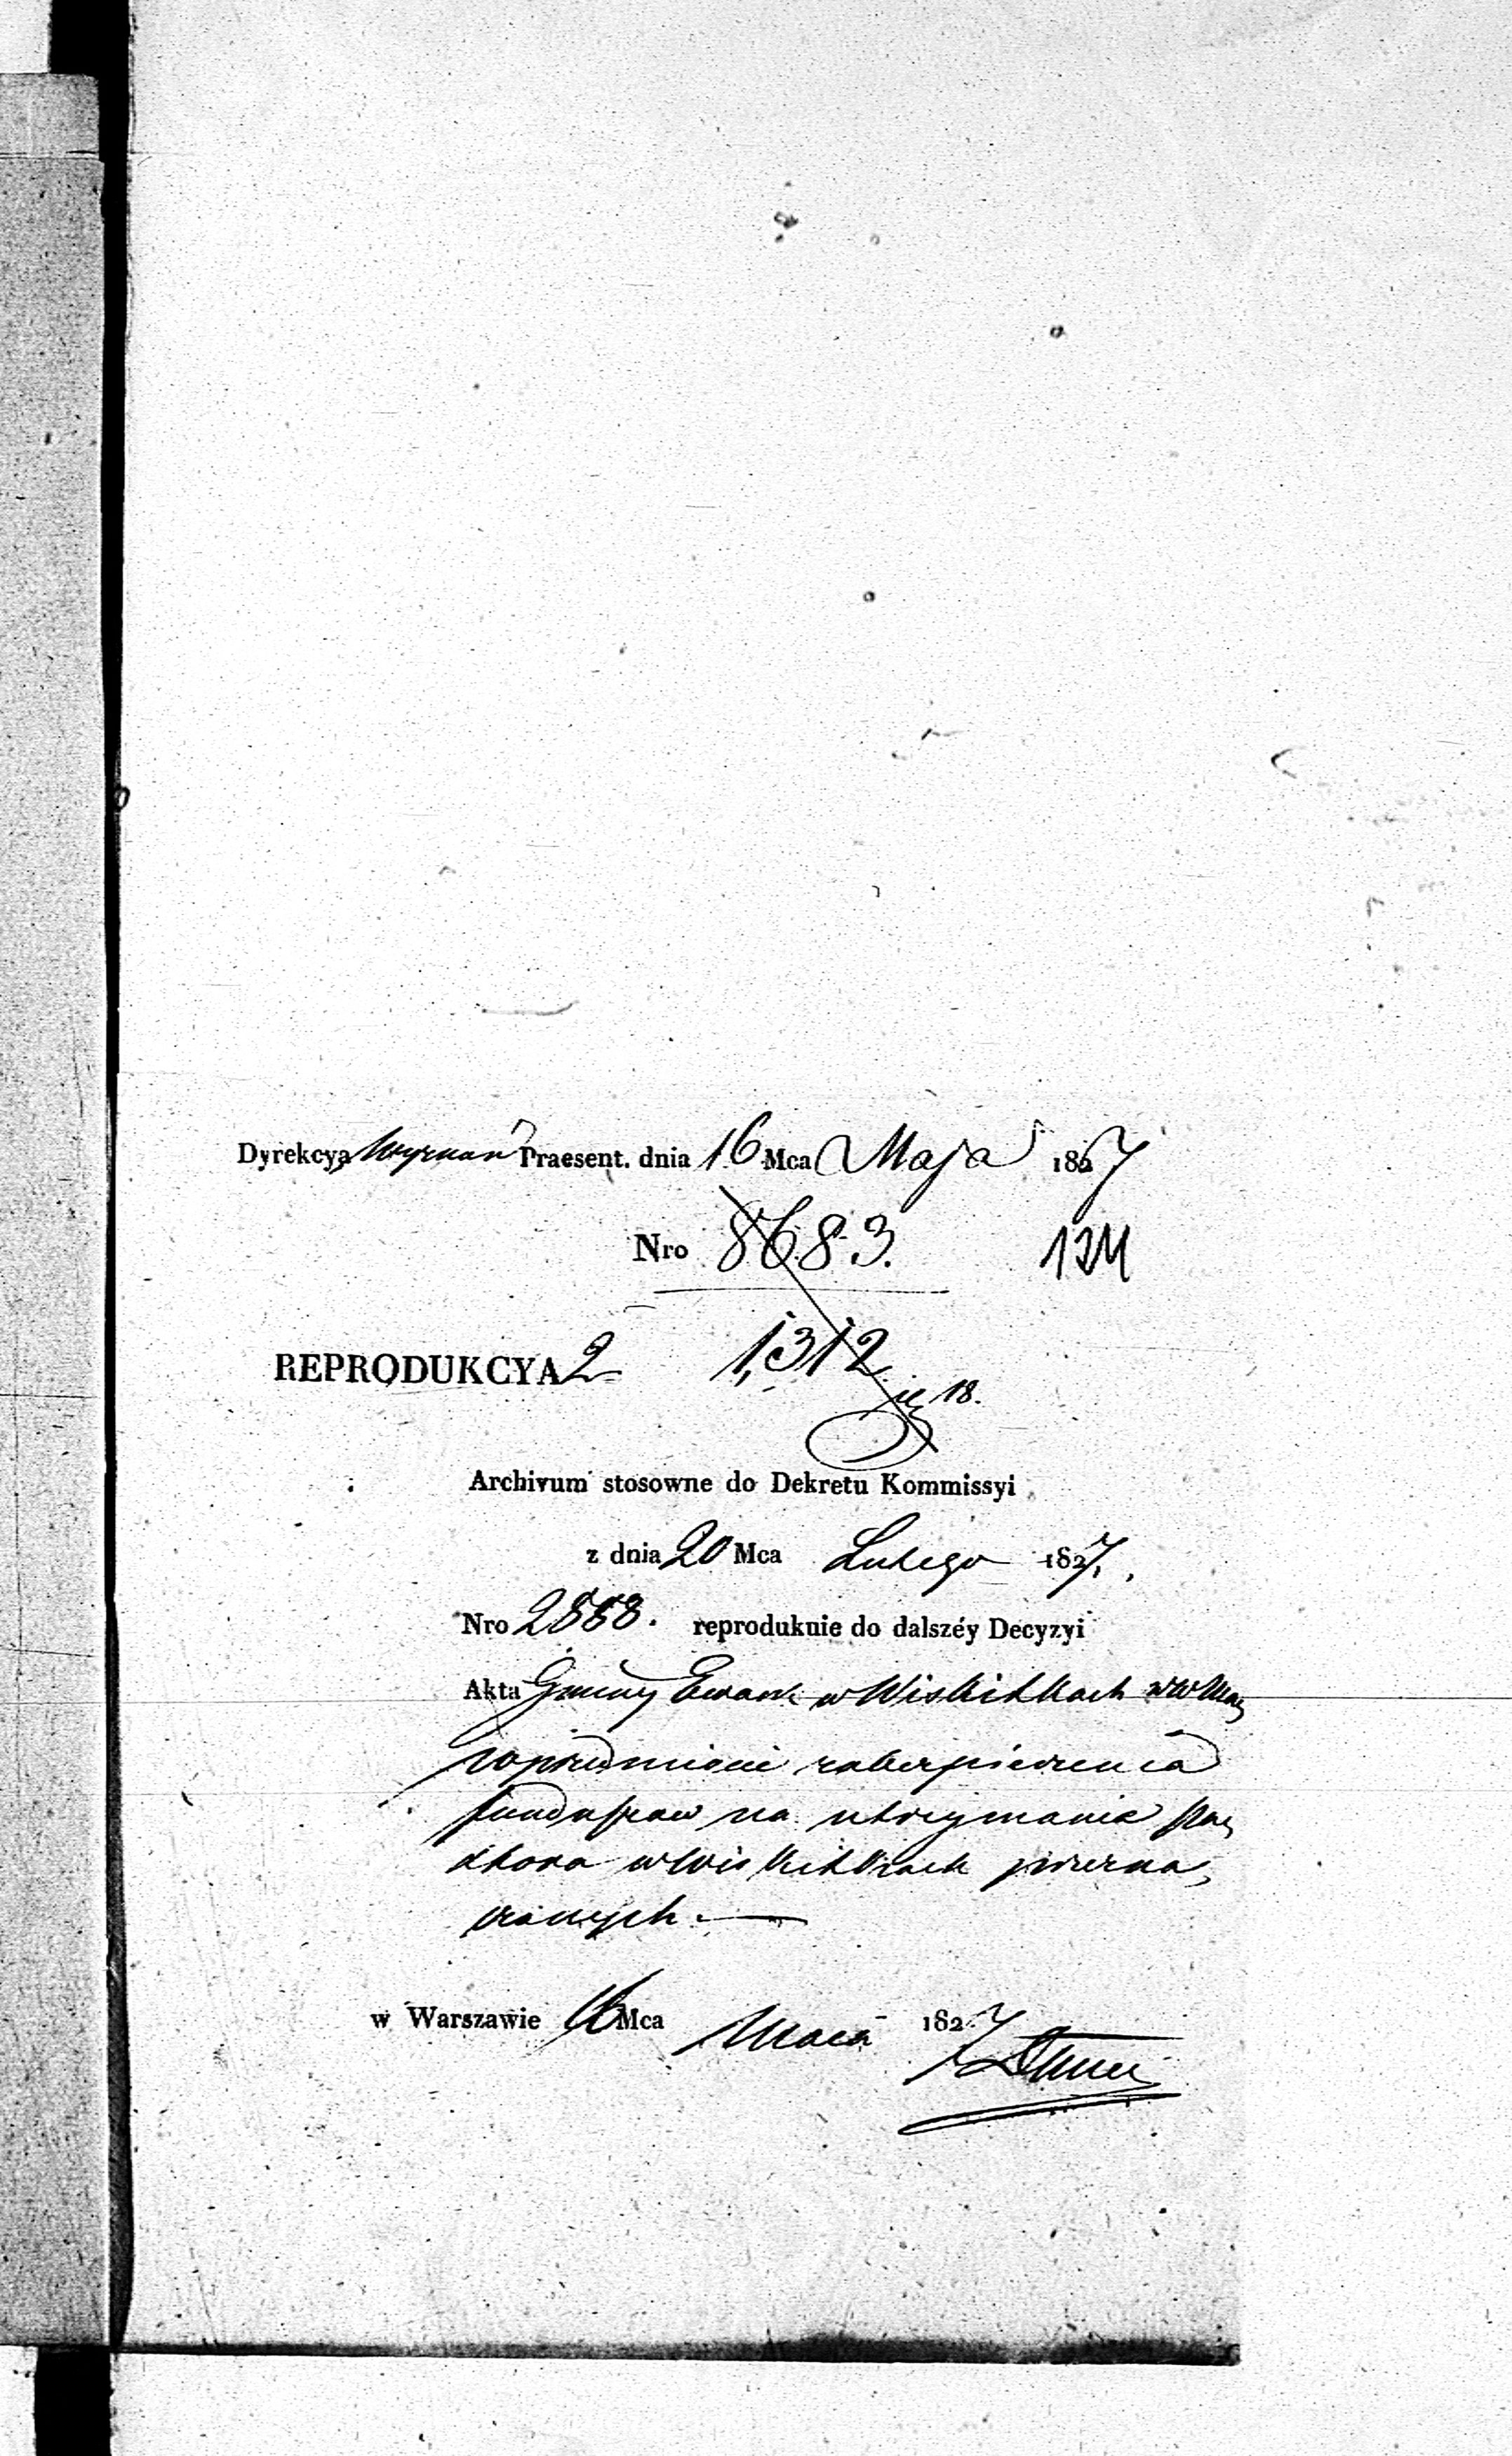 Dyrekcya Wyznań Praesent. dnia 16 Mca Maja 1827
Nro 8683. 124
REPRODUKCYA 2 1,312
18.
Archivum stosowne do Dekretu Kommissyi
z dnia 20 Mca Lutego 1827.
Nro 2888. reproduknie do dalszéy Decyzyi
Akta Gminy Ewan: w Wiskitkach w W Maz
w przedmiocie zabezpieczenia
funduszow na utrzymanie Pas
thora w Wiskitkach przezna
czonych. —
w Warszawie 16 Mca Maia 1827